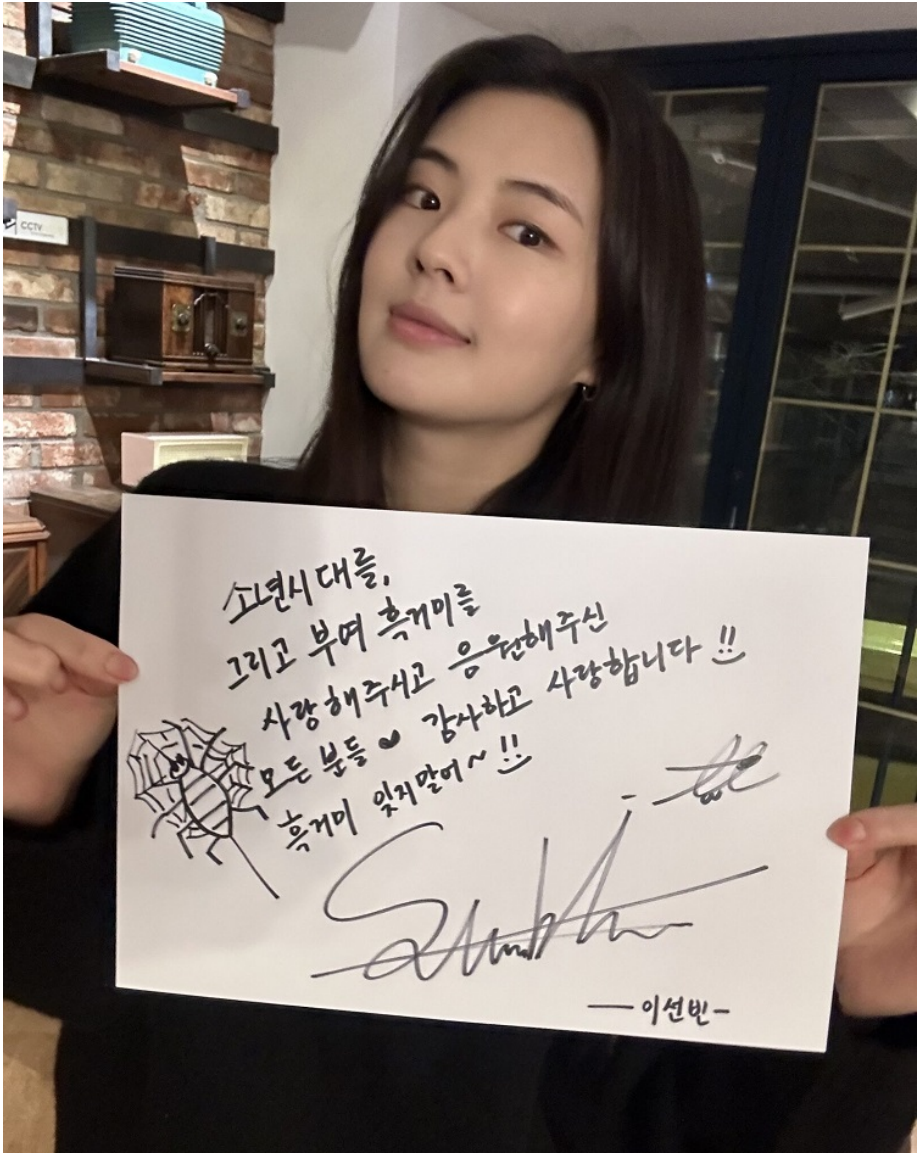 CCTV
소년시대를,
그리고 부여 흑거미를
사랑해주시고 응원해주신
모든 분들 ♥ 감사하고 사랑합니다 !!
흑거미 잊지말어~ !!
— 이선빈 -